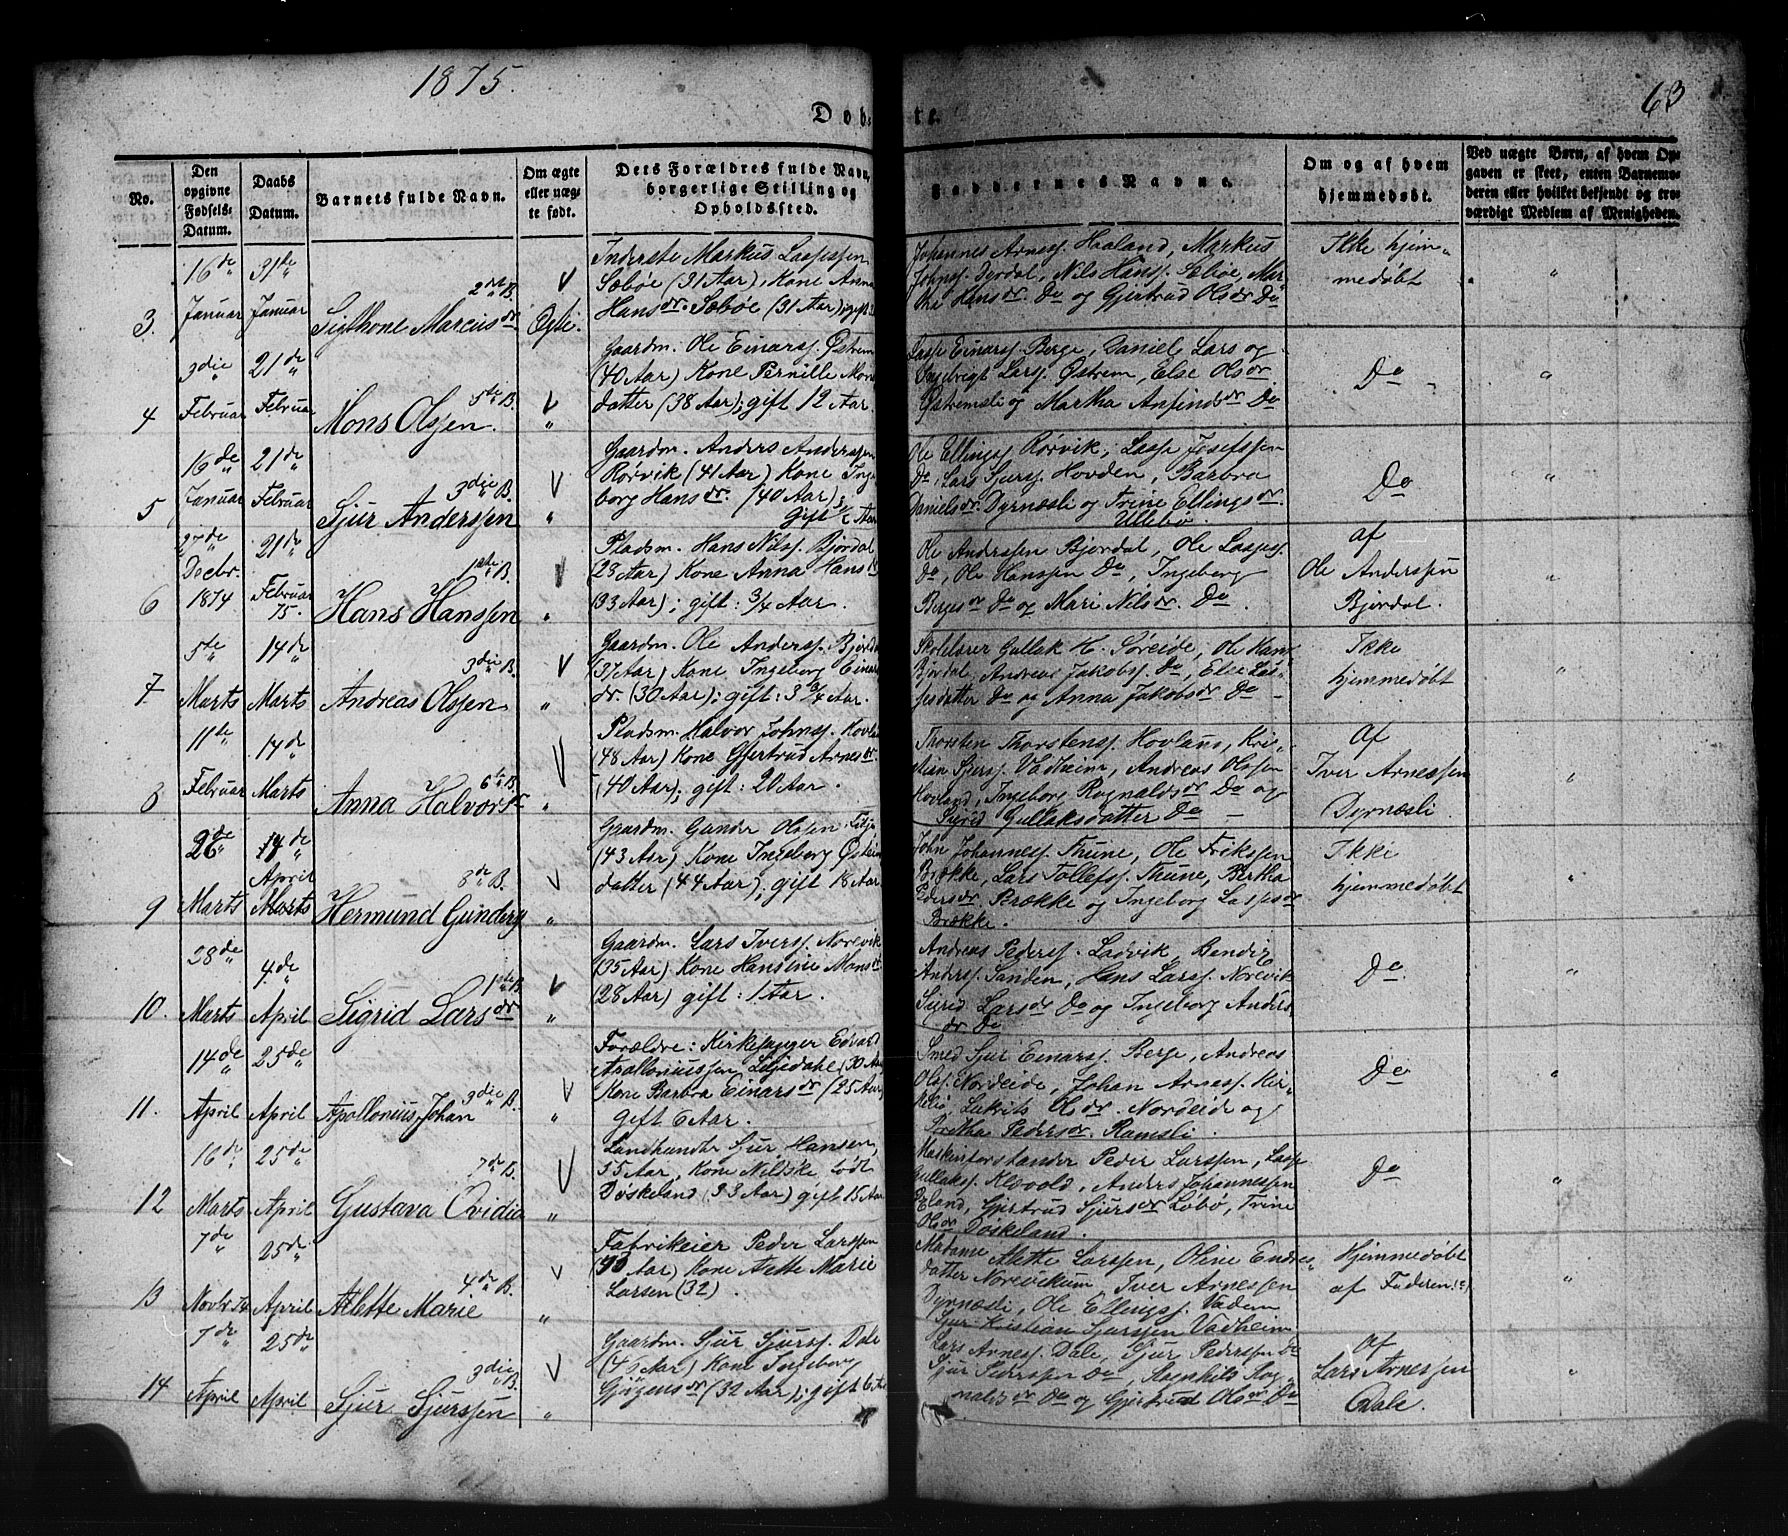 1875.
63
Døb-
te.
No.
Den opgivne Fødsels-Datum.
Daabs Datum.
Barnets fulde Navn.
Om ægte eller uæg-te født.
Dets Forældres fulde Navn, borgerlige Stilling og Opholdssted.
Faddernes Navne.
Om og af hvem hjemmedøbt.
Ved uægte Børn, af hvem Op-gaven er skeet, enten Barnemo-deren eller hvilket bekjendt og tro-værdigt Medlem af Menigheden.
3.
16de Januar
31te Januar
2det B.
Sigthone Marcusdr
Ægte.
Inderste Markus Lassessen
Sæbøe (31 Aar), Kone Anna
Hansdr. Sæbøe (31 Aar); gift
Johannes Arness. Haaland, Markus
Johnss. Dyrdal, Nils Hanss. Sæbøe, Mar-
tha Hansdr. Do og Gjertrud Olsdr Do
Ikke hjem-
medøbt
"
4
3die Februar
21de Februar
5te B.
Mons Olssen.
"
Gaardm. Ole Einarss. Østrem
(40 Aar) Kone Pernille Mons
datter (38 Aar); gift 12 Aar.
Lasse Einarss. Berge, Daniel Lars og
Ingebrigt Larss. Østrem, Else Olsdr.
Østremsli og Martha Anfindsdr Do
Do
"
5
16de Januar
21de Februar
3die B.
Sjur Anderssen
"
Gaardm. Anders Anderssen
Rørvik (41 Aar) Kone Inge
borg Hansdr. (40 Aar);
Gift 1/2 Aar
Ole Ellingss Rørvik, Lasse Josefssen
Do, Lars Sjurss. Hovden, Barbra
Danielsdr. Dyrnæsli og Trine Ellingsdr
Ullebø.
Do
"
6
27de Decbr. 1874
21de Februar 75.
1ste B.
Hans Hanssen
"
Pladsm. Hans Nilss. Bjørdal
(28 Aar) Kone Anna Hansdr
(33 Aar); gift: 3/4 Aar.
Ole Anderssen Bjørdal, Ole Lassess.
Do, Ole Hanssen Do, Ingeborg
Bergesdr Do og Mari Nilsdr. Do
af
Ole Anderssen
Bjørdal.
"
7.
5te Marts
14de Marts
3die B.
Andreas Olssen
"
Gaardm. Ole Anderss. Bjørdal
(37 Aar) Kone Ingeborg Einars
dr. (30 Aar); gift: 3 3/4 Aar.
Skolelærer Gullak H. Søreide, Ole Hans
Bjørdal, Andreas Jakobss. Do, Else Las-
sesdatter Do og Anna Jakobsdr Do -
Ikke
hjemmedøbt
"
8
11te Februar
14de Marts
6te B.
Anna Halvorsdr
"
Pladsm. Halvor Johnss. Hovland
(48 Aar) Kone Gjertrud Arnesdr.
(40 Aar); gift: 20 Aar.
Thorsten Thorstenss. Hovland, Kri-
stian Sjurss. Vadheim, Andreas Olssen
Hovland, Ingeborg Ragnaldsdr Do og
Sigrid Gullaksdatter Do -
af
Iver Arnessen
Dyrnæsli
"
9
26de Marts
14de April Marts
8de B.
Hermund Gunderss
"
Gaardm. Gunder Olssen
(43 Aar) Kone Ingeborg
datter (44 Aar); gift 18 Aar.
John Johanness. Thune, Ole Erikssen
Brække, Lars Tollefss. Thune, Bertha
Pedersdr. Brække og Ingeborg Lassesdr
Brække.
Ikke
hjemmedøbt
"
10.
28de Marts
4de April
1ste B.
Sigrid Larsdr
"
Gaardm. Lars Iverss. Norevik
(35 Aar) Kone Hansine Monsdr
(28 Aar) gift: 1 Aar.
Andreas Pederss. Ladvik, Bendix
Anderss. Sanden, Hans Larss. Norevik
Sigrid Larsdr Do og Ingeborg Anders-
dr. Do
Do
"
11.
14de April
25de April
3die B.
Apollonius Johan
"
Forældre: Kirkesanger Edvard
Apolloniussen Liljedahl (30 Aar)
Kone Barbra Einarsdr (25 Aar)
gift 6 Aar.
Smed Sjur Einarss. Berge, Andreas
Olss. Nordeide, Johan Arness. Kir-
kebø, Lukrits Olsdr. Nordeide og
Soretha Pedersdr. Ramsli.
Do
"
12
16de Marts
25de April
7de B.
Gustava Ovidia
"
Landhandler Sjur Hansen,
55 Aar, Kone Nilske født
Døskeland (33 Aar) gift 15 Aar
Maskinforstander Peder Larssen, Lasse
Gullakss. Klævold, Anders Johannessen
Eland, Gjertrud Sjursdr Løbø, Trine
Olsdr Døskeland.
Do
"
13
7de Novbr. 74
25de April
4de B.
Alette Marie
"
Fabrikeier Peder Larssen
(40 Aar) Kone Alette Marie
Larsen (32).
Madame Alette Larssen, Oline Endres-
datter Norevikum, Iver Arnessen
Dyrnæsli, Ole Ellingss. Vadem
Sjur Kristian Sjurssen Vadheim
Hjemmedøbt
af Faderen(?)
"
14
7de April
25de April
3die B.
Sjur Sjurssen
"
Gaardm. Sjur Sjurss. Dale
Kone Ingeborg
Gjøgensdr (32 Aar); gift 6 Aar
Lars Arness. Dale, Sjur Pederssen Do
Sjur Sjurssen Do, Ragnhilds Rag-
naldsdr Do og Gjertrud Olsdr Do
af
Lars Arnessen
Dale.
"